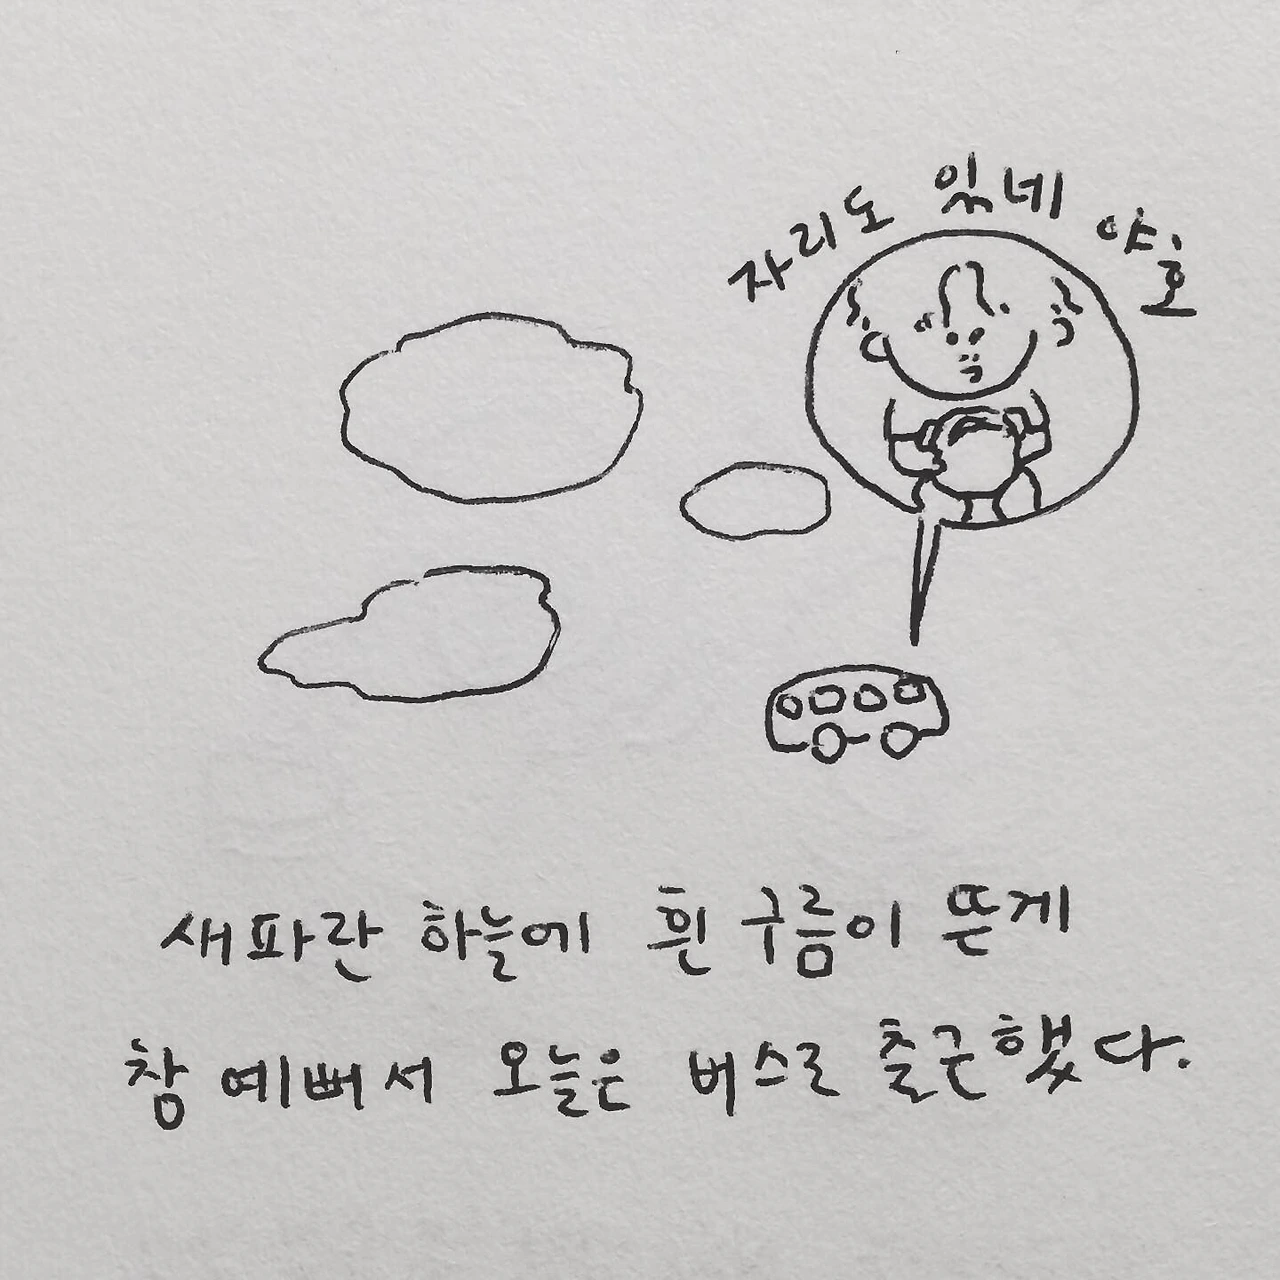 자리도 있네 야호
새파란 하늘에 흰 구름이 뜬게
참 예뻐서 오늘은 버스로 출근했다.